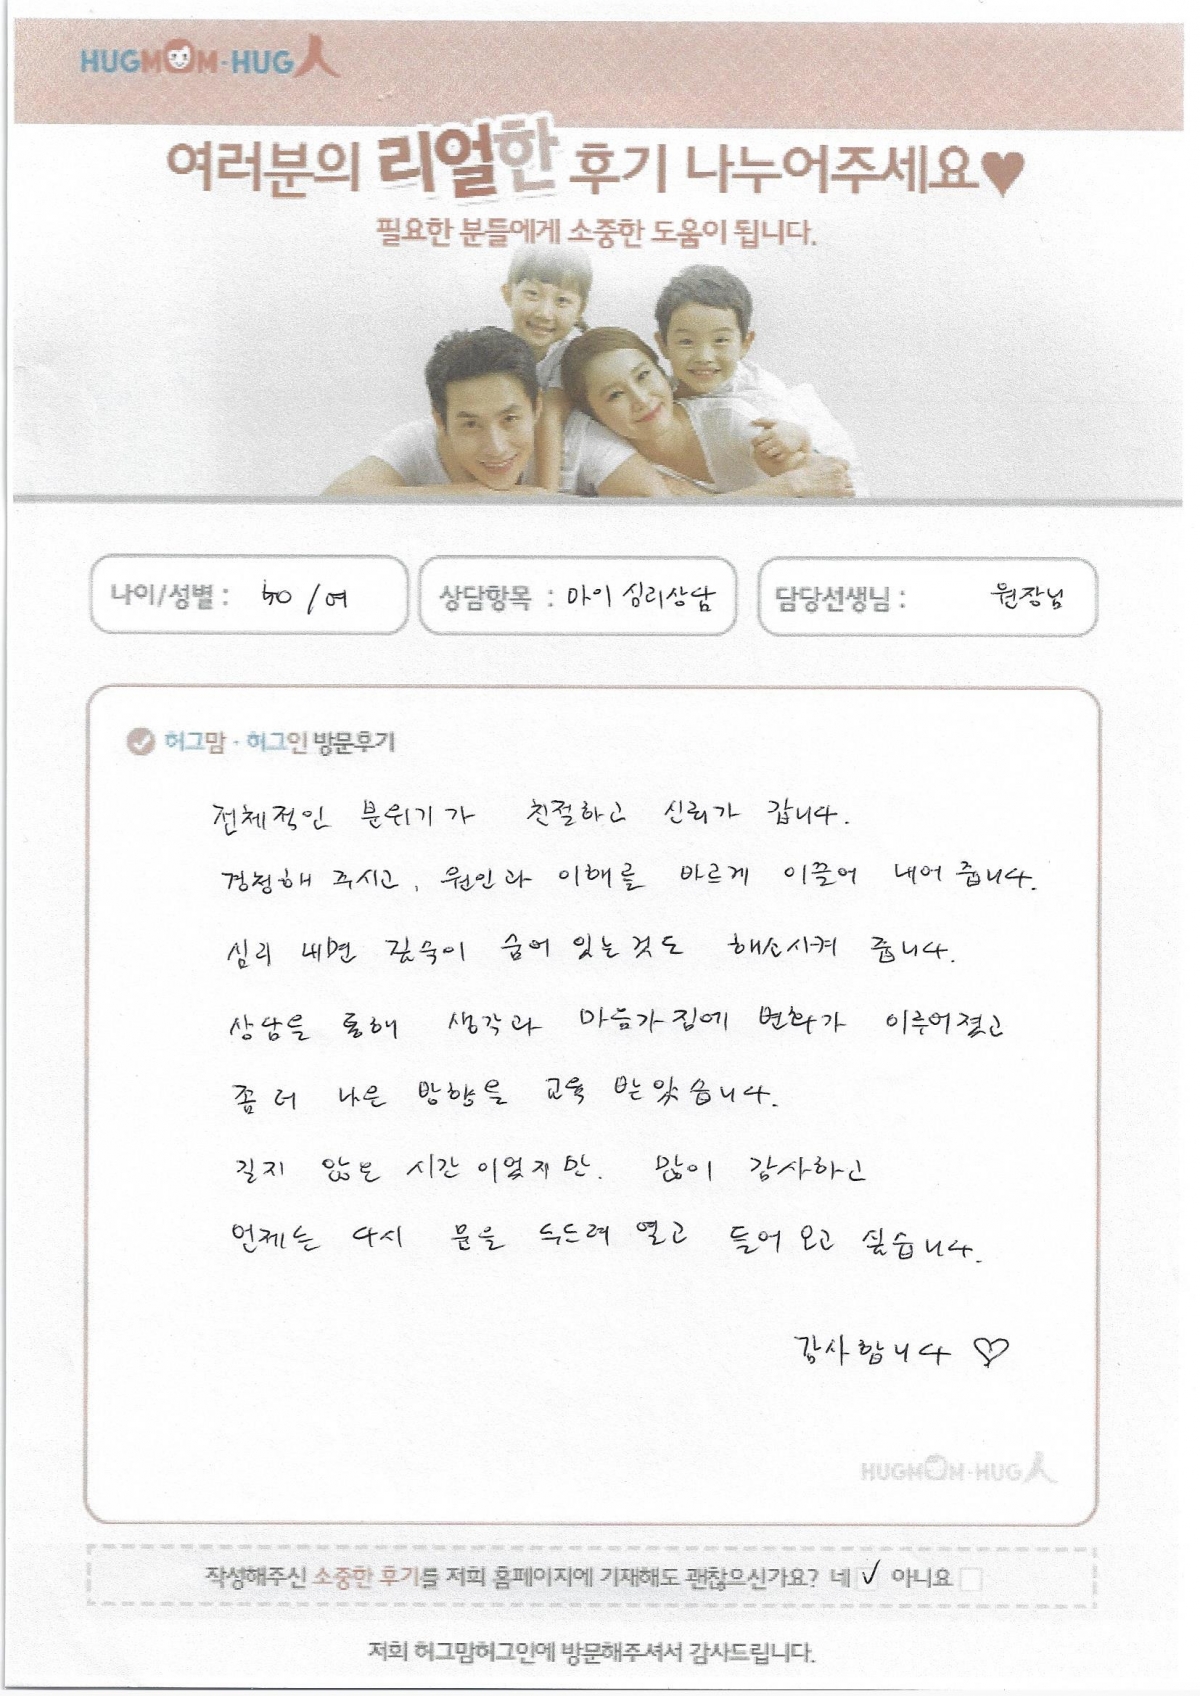 HUGMOM·HUG人
여러분의 리얼한 후기 나누어주세요♥
필요한 분들에게 소중한 도움이 됩니다.
나이/성별 : /여
상담항목 : 마이 심리상담
담당선생님 : 원장님
허그맘·허그인 방문후기
전체적인 분위기가 친절하고 신뢰가 갑니다.
경청해 주시고, 원인과 이해를 바르게 이끌어 내어 줍니다.
심리 내면 깊숙이 숨어 있는것도 해소시켜 줍니다.
상담을 통해 생각과 마음가짐에 변화가 이루어졌고
좀 더 나은 방향을 교육 받았습니다.
길지 않은 시간이었지만. 많이 감사하고
언제든 다시 문을 두드려 열고 들어 오고 싶습니다.
감사합니다 ♡
HUGMOM·HUG人
작성해주신 소중한 후기를 저희 홈페이지에 기재해도 괜찮으신가요? 네 ✓ 아니요 □
저희 허그맘허그인에 방문해주셔서 감사드립니다.